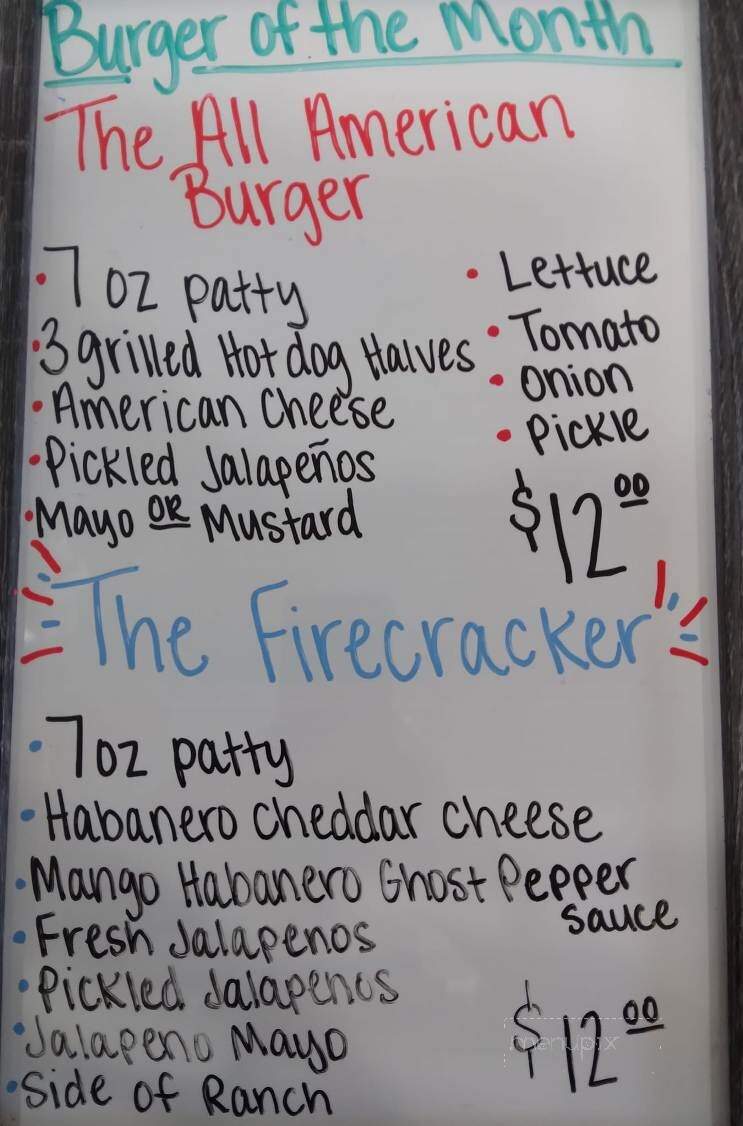 Burger of the Month
The All American
Burger
• 7 oz patty
• 3 grilled Hot dog Halves
• American Cheese
• Pickled Jalapeños
• Mayo OR Mustard
• Lettuce
• Tomato
• Onion
• Pickle
$12.00
The Firecracker
• 7 oz patty
• Habanero cheddar cheese
• Mango Habanero Ghost Pepper
sauce
• Fresh Jalapenos
• Pickled Jalapenos
• Jalapeno Mayo
• Side of Ranch
$12.00
menupix